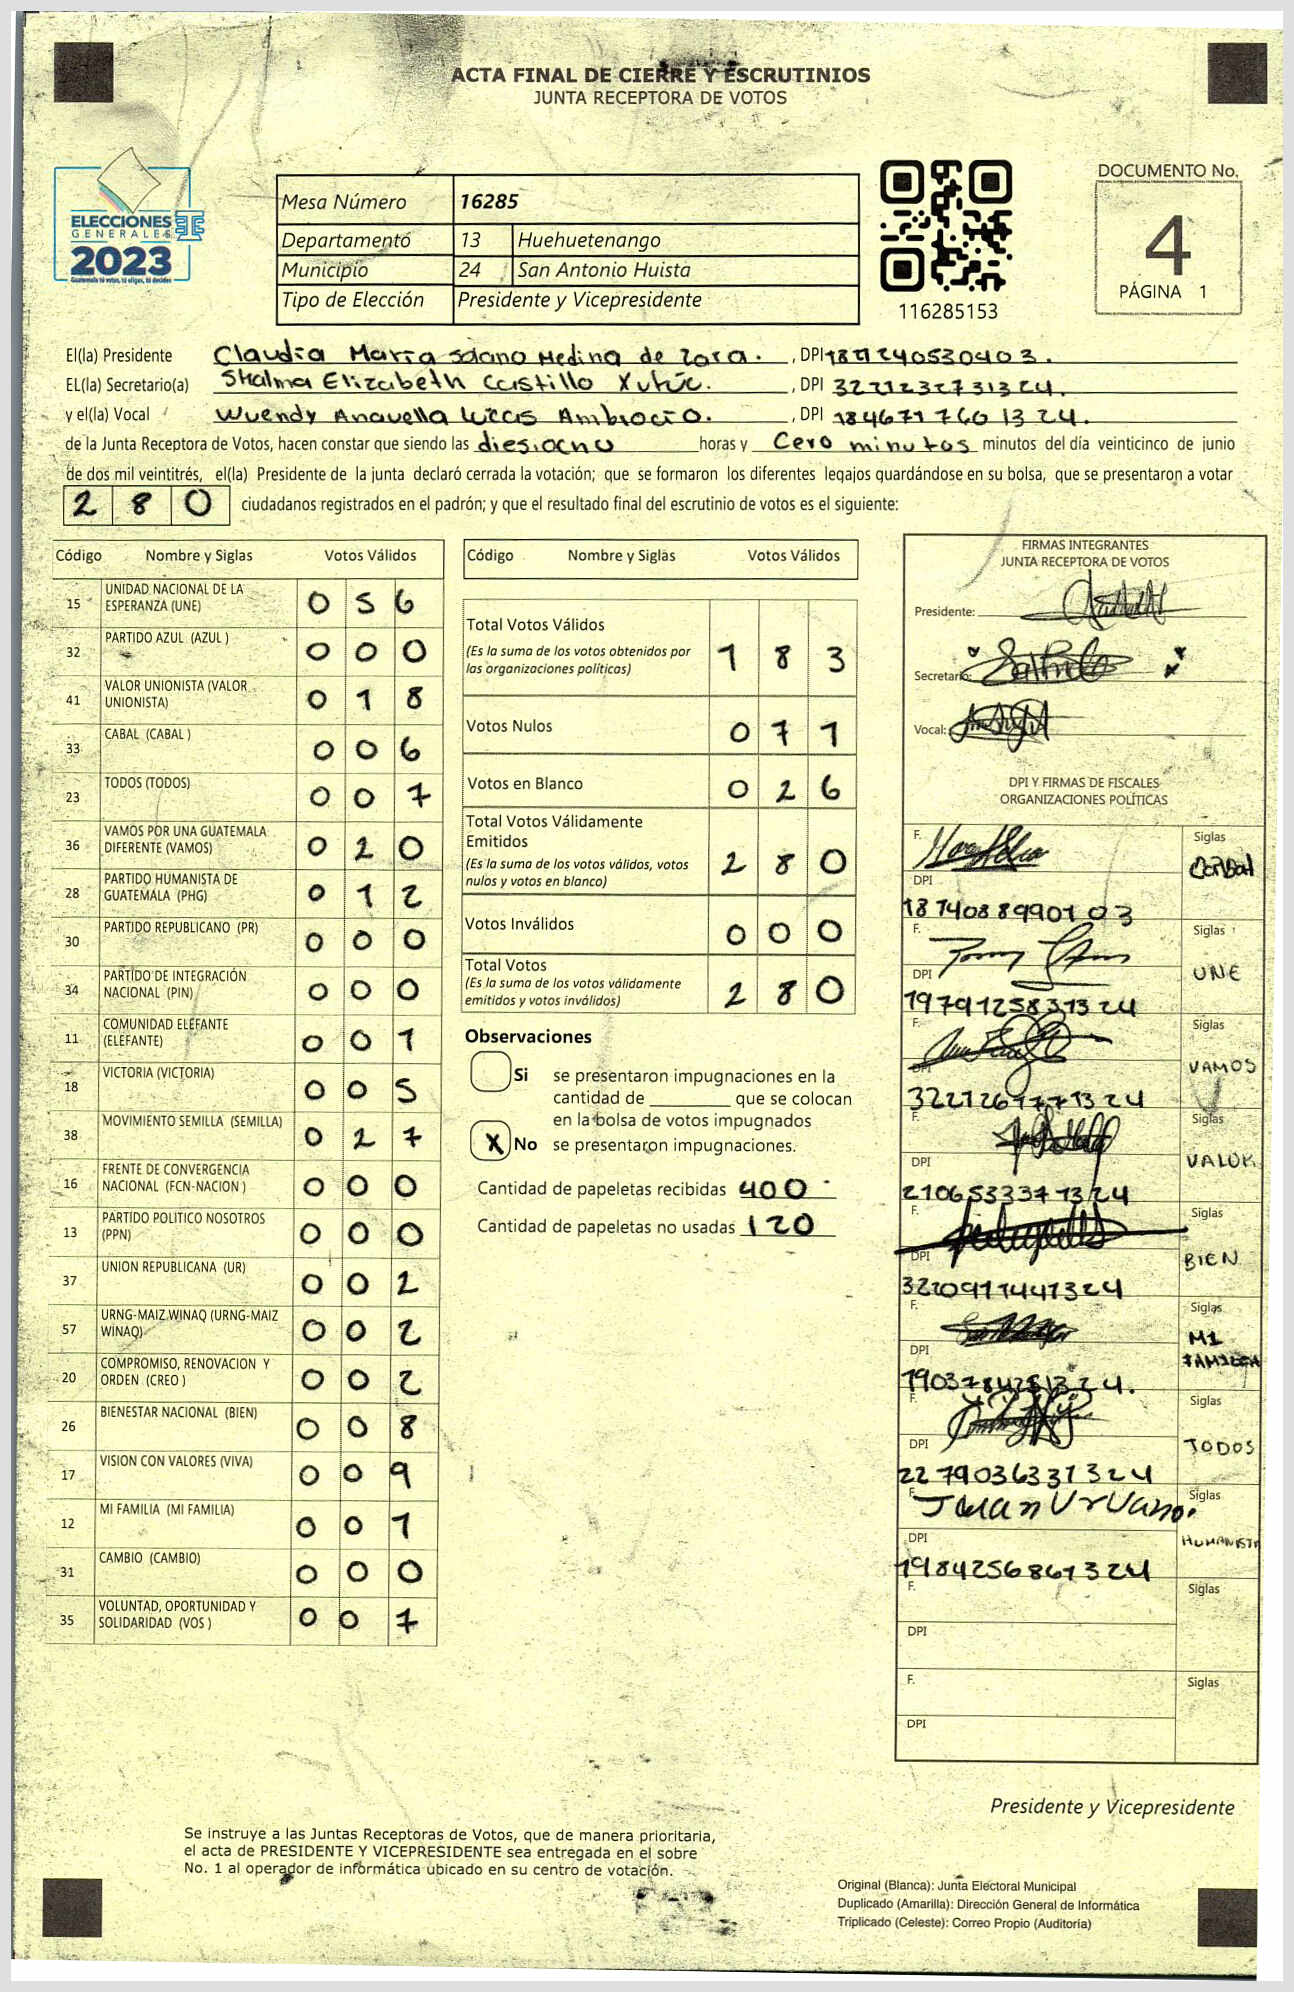 ACTA FINAL DE CIERRE Y ESCRUTINIOS
JUNTA RECEPTORA DE VOTOS
ELECCIONES
GENERALES
2023
Guatemala tú votas, tú eliges, tú decides
Mesa Número 16285
Departamento 13 Huehuetenango
Municipio 24 San Antonio Huista
Tipo de Elección Presidente y Vicepresidente
116285153
DOCUMENTO No.
4
PÁGINA 1
El(la) Presidente Claudia María Solano Medina de Zora. , DPI
EL(la) Secretario(a) Shalma Elizabeth Castillo , DPI 3221232731324.
y el(la) Vocal Wuendy Anavella Lucas Ambrocio. , DPI 1846717601324.
de la Junta Receptora de Votos, hacen constar que siendo las diesiocho horas y Cero minutos minutos del día veinticinco de junio
de dos mil veintitrés, el(la) Presidente de la junta declaró cerrada la votación; que se formaron los diferentes legajos guardándose en su bolsa, que se presentaron a votar
280 ciudadanos registrados en el padrón; y que el resultado final del escrutinio de votos es el siguiente:
Código Nombre y Siglas Votos Válidos
15 UNIDAD NACIONAL DE LA ESPERANZA (UNE) 056
32 PARTIDO AZUL (AZUL ) 000
41 VALOR UNIONISTA (VALOR UNIONISTA) 018
33 CABAL (CABAL ) 006
23 TODOS (TODOS) 007
36 VAMOS POR UNA GUATEMALA DIFERENTE (VAMOS) 020
28 PARTIDO HUMANISTA DE GUATEMALA (PHG) 012
30 PARTIDO REPUBLICANO (PR) 000
34 PARTIDO DE INTEGRACIÓN NACIONAL (PIN) 000
11 COMUNIDAD ELEFANTE (ELEFANTE) 001
18 VICTORIA (VICTORIA) 005
38 MOVIMIENTO SEMILLA (SEMILLA) 027
16 FRENTE DE CONVERGENCIA NACIONAL (FCN-NACION ) 000
13 PARTIDO POLITICO NOSOTROS (PPN) 000
37 UNION REPUBLICANA (UR) 002
57 URNG-MAIZ WINAQ (URNG-MAIZ WINAQ) 002
20 COMPROMISO, RENOVACION Y ORDEN (CREO ) 002
26 BIENESTAR NACIONAL (BIEN) 008
17 VISION CON VALORES (VIVA) 009
12 MI FAMILIA (MI FAMILIA) 001
31 CAMBIO (CAMBIO) 000
35 VOLUNTAD, OPORTUNIDAD Y SOLIDARIDAD (VOS ) 007
Código Nombre y Siglas Votos Válidos
Total Votos Válidos 183
(Es la suma de los votos obtenidos por
las organizaciones políticas)
Votos Nulos 071
Votos en Blanco 026
Total Votos Válidamente
Emitidos 280
(Es la suma de los votos válidos, votos
nulos y votos en blanco)
Votos Inválidos 000
Total Votos 280
(Es la suma de los votos válidamente
emitidos y votos inválidos)
Observaciones
Si se presentaron impugnaciones en la
cantidad de ________ que se colocan
en la bolsa de votos impugnados
X No se presentaron impugnaciones.
Cantidad de papeletas recibidas 400
Cantidad de papeletas no usadas 120
FIRMAS INTEGRANTES
JUNTA RECEPTORA DE VOTOS
Presidente:
Secretario:
Vocal:
DPI Y FIRMAS DE FISCALES
ORGANIZACIONES POLÍTICAS
F. Siglas
DPI
1874088990103
F. Siglas
UNE
DPI
1979125831324
F. Siglas
VAMOS
DPI
3221261771324
F. Siglas
VALOR
DPI
2106533371324
F. Siglas
BIEN
DPI
3220911441324
F. Siglas
MI
FAMILIA
DPI
1903784251324.
F. Siglas
TODOS
DPI
2279036331324
F. Juan Urvano. Siglas
HUMANISTA
DPI
1984256861324
F. Siglas
DPI
F. Siglas
DPI
Presidente y Vicepresidente
Se instruye a las Juntas Receptoras de Votos, que de manera prioritaria,
el acta de PRESIDENTE Y VICEPRESIDENTE sea entregada en el sobre
No. 1 al operador de informática ubicado en su centro de votación.
Original (Blanca): Junta Electoral Municipal
Duplicado (Amarilla): Dirección General de Informática
Triplicado (Celeste): Correo Propio (Auditoría)